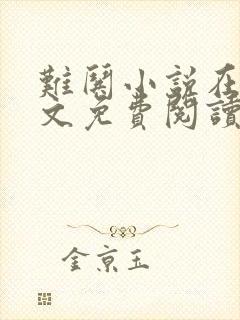 難鬧小說在
文免費閱讀
金京玉